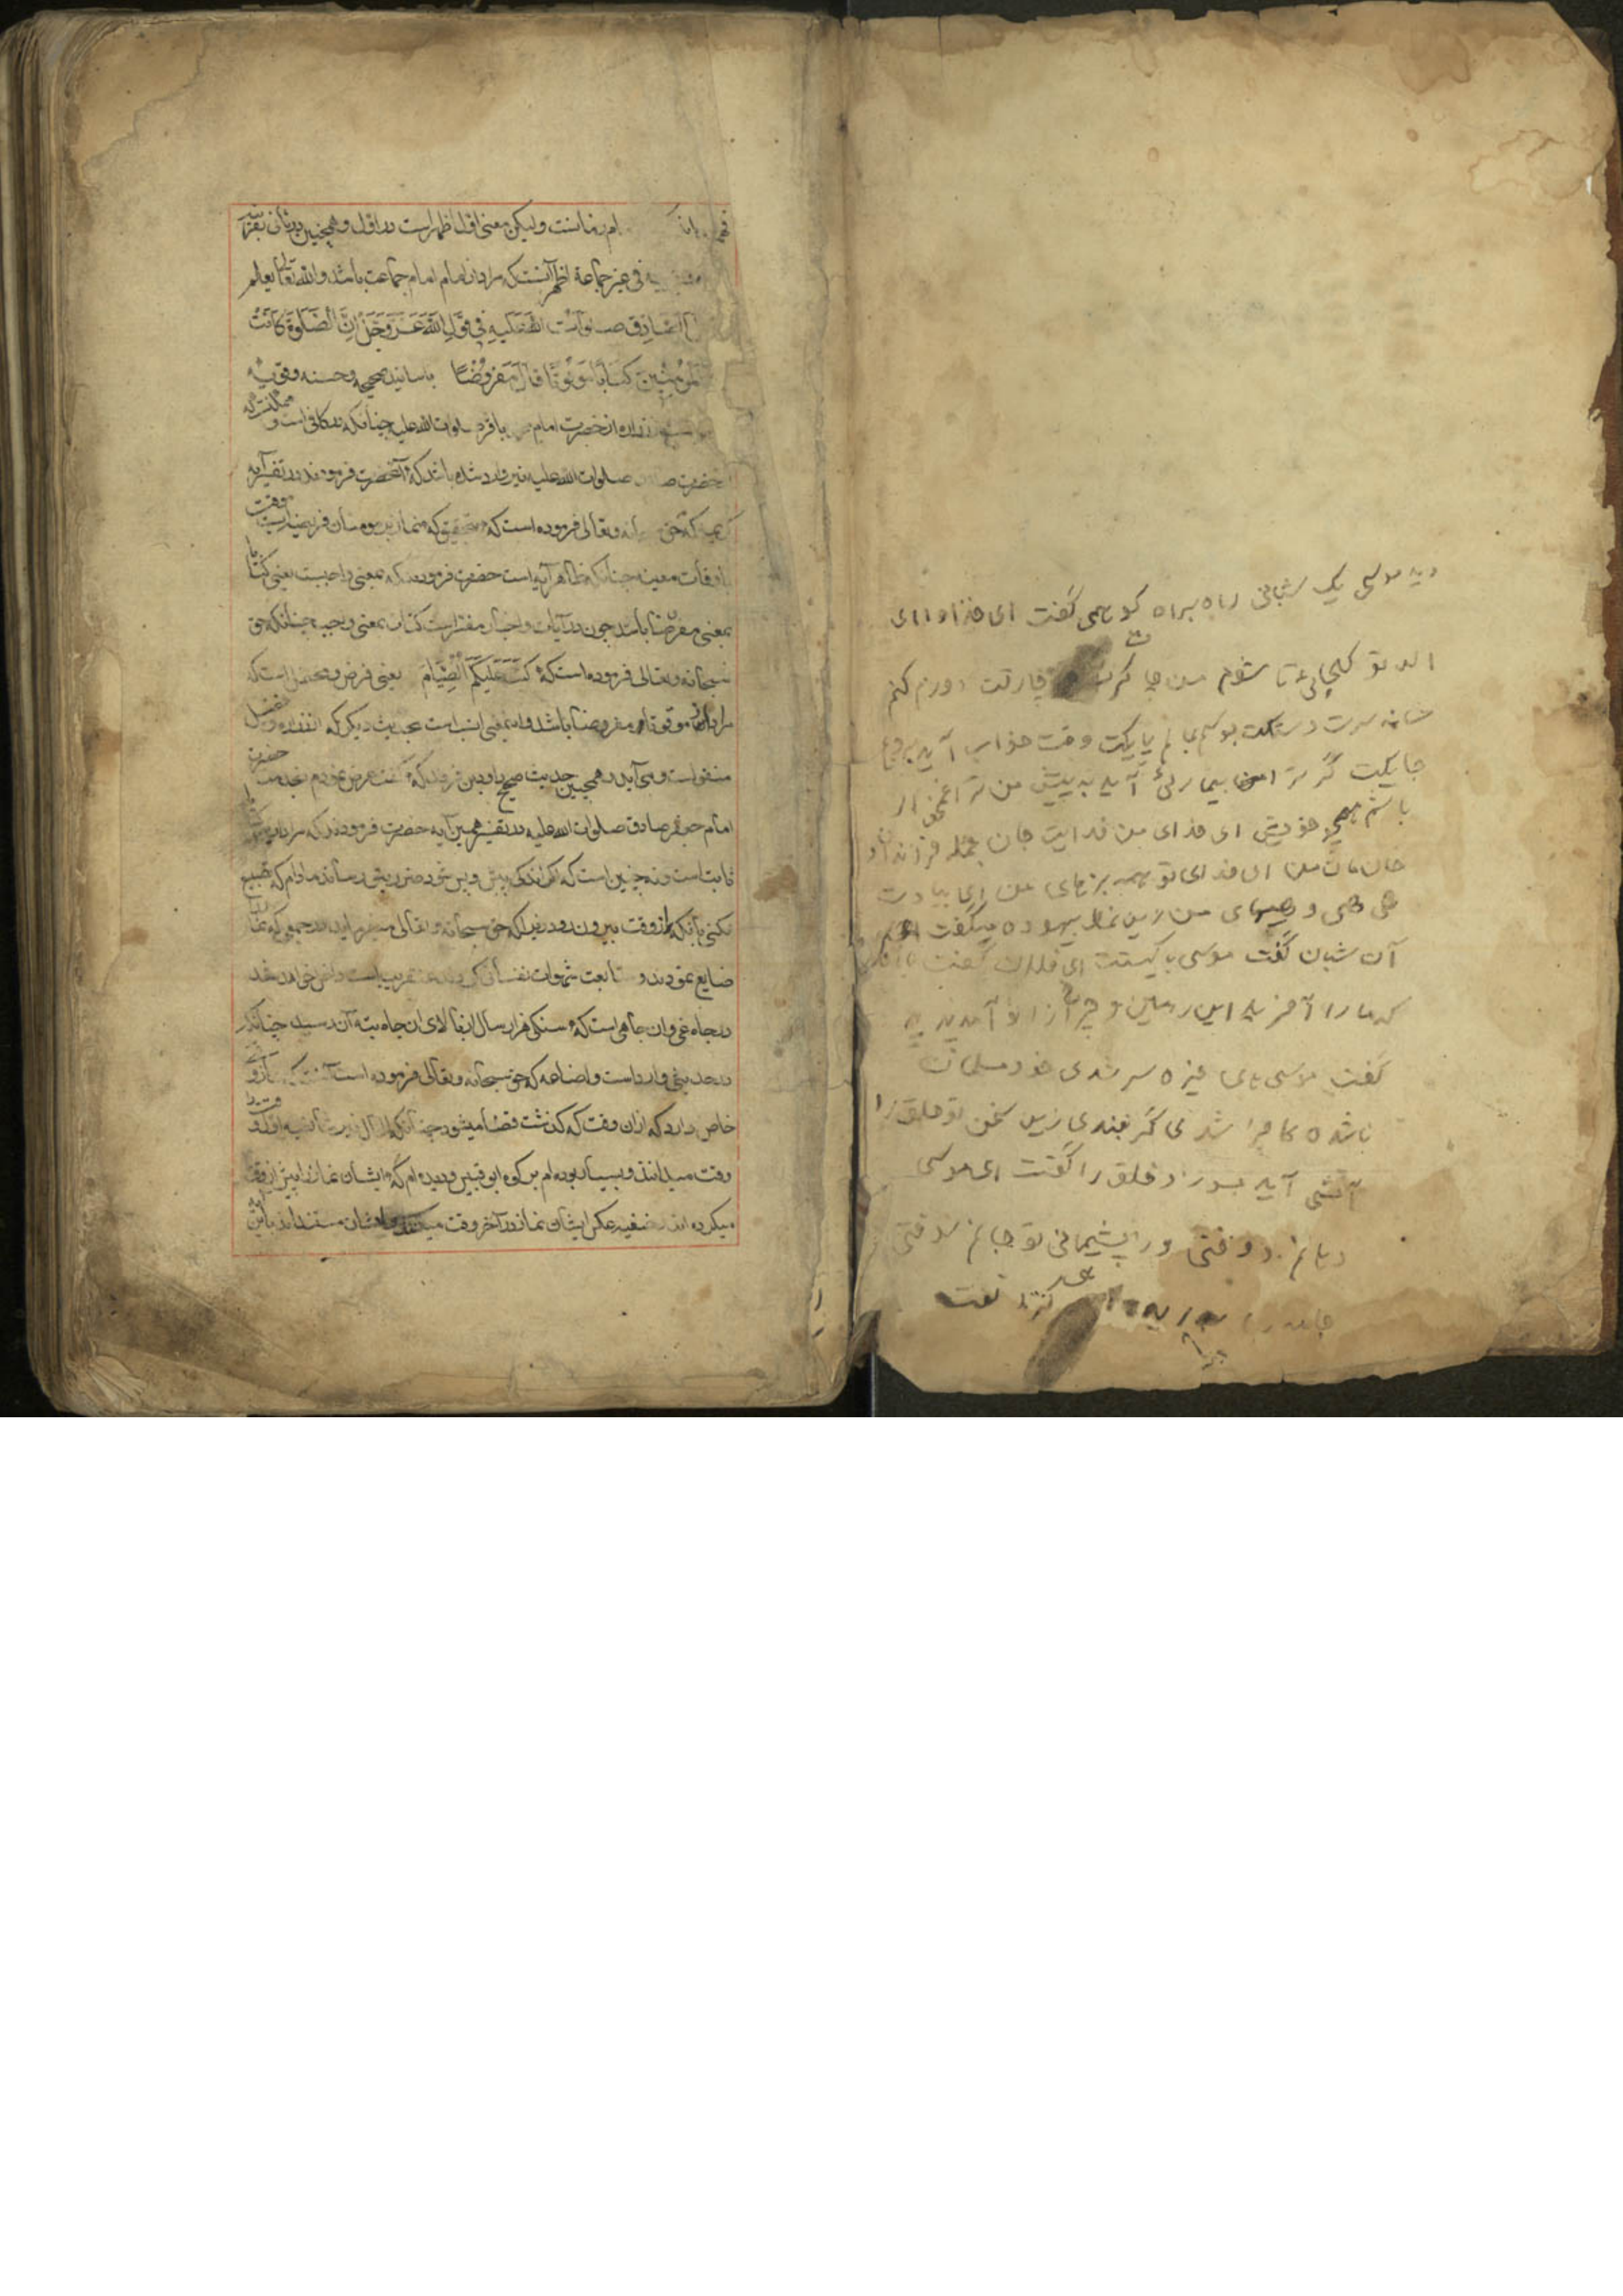 دید موسی یک شبانی را براه کو همی گفت ای خدا و ای
اله تو کجایی تا شوم من چاکرت چارقت دوزم کنم
شانه سرت دستکت بوسم بمالم پایکت وقت خواب آید بروبم
جایکت گر ترا بیماریی آید به پیش من ترا غمخوار
باشم همچو خویش ای خدای من فدایت جان جمله فرزندان و
خان مان من ای فدای تو همه بزهای من ای بیادت
هی هی و هیهای من زین نمط بیهوده میگفت
آن شبان گفت موسی با کیستت ای فلان گفت با آنکس
که ما را آفرید این زمین و چرخ ازو آمد پدید
گفت موسی های خیره سر شدی خود مسلمان
ناشده کافر شدی گر نبندی زین سخن تو حلق را
آتشی آید بسوزد خلق را گفت ای موسی
دهانم دوختی وز پشیمانی تو جانم سوختی
جامه را بدرید کرد تفت
امام زمانست ولیکن معنی اول اظهر است در اول و همچنین در ثانی بقرینه
فی غیر جماعة اظهر آنست که مراد از امام امام جماعت باشد والله تعالی یعلم
الصادق صلوات الله علیه فی قول الله عز و جل ان الصلوة کانت
المؤمنین کتابا موقوتا قال مفروضا باسانید صحیحه و حسنه و قویه
از حضرت امام باقر صلوات الله علیه چنانکه در کافی است و ممکنست که
حضرت صلوات الله علیه نیز وارد شده باشد که آنحضرت فرمودند در تفسیر آیه
کریمه که حق و تعالی فرموده است که بتحقیق که نماز بر مومنان فریضه ایست موقت
باوقات معینه چنانکه ظاهر آیه است حضرت فرمودند که بمعنی واجبست یعنی کتابا
بمعنی مفروضا باشد چون در آیات و اخبار مقرر است کتاب بمعنی وجوب چنانکه حق
سبحانه و تعالی فرموده است که کتب علیکم الصیام یعنی فرض و محتمل است که
مراد از موقوتا مفروضا باشد و این معنی انسب است بحدیث دیگر که از زراره و فضیل
منقول است و می آید و همچنین حدیث صحیح داود بن فرقد که گفت عرض نمودم بخدمت حضرت
امام جعفر صادق صلوات الله علیه در تفسیر همین آیه حضرت فرمودند که مراد
ثابت است و نه چنین است که اگر اندکی پیش و پس شود ضرری بتو رساند مادام که تضییع
نکنی بآنکه از وقت بیرون رود زیرا که حق سبحانه و تعالی میفرماید در جمعی که نماز را
ضایع نمودند و متابعت شهوات نفسانی کردند عنقریبست داخل خواهند شد
در چاه غی و آن چاهی است که سنگی هزار سال از بالای آن چاه بته آن نرسید چنانکه
در حدیثی وارد است و اضاعه که حق سبحانه و تعالی فرموده است آنست که نماز وقتی
خاص دارد که از آن وقت که گذشت قضا میشود چنانکه شافعیه اول وقت را
وقت میدانند و بسیار بوده ام بر کوه ابو قبیس و دیده ام که ایشان نماز را پیش از وقت
میکرده اند حنفیه عکس ایشان نماز در آخر وقت میکنند و ایشان مستندند بآیه